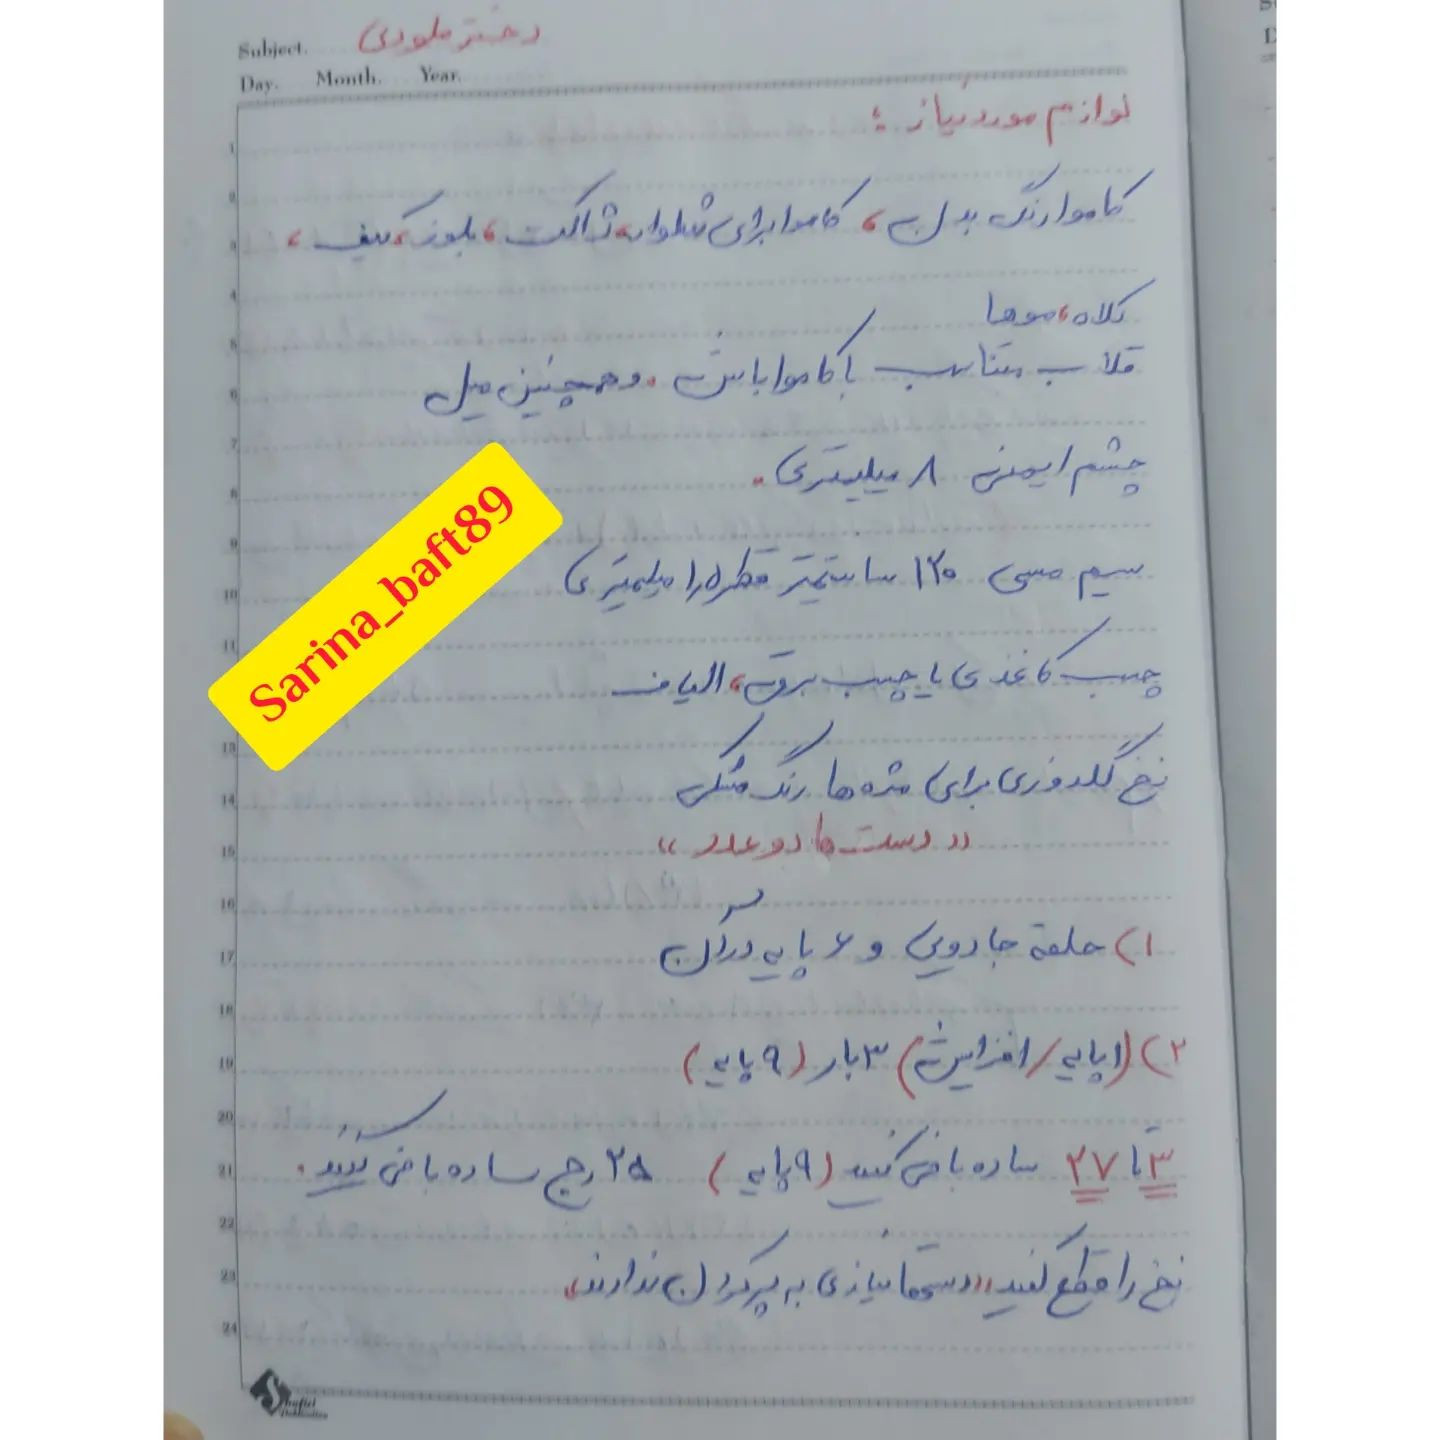 Subject. دختر ملودی
Day. Month. Year.
لوازم مورد نیاز :
کاموا رنگ بدن ، کاموا برای شلوار، ژاکت، بلوز، کیف ،
کلاه، موها
قلاب متناسب با کاموا باشه . وهمچنین میل
چشم ایمنی ۸ میلیمتری .
سیم مسی ۱۲۰ سانتیمتر قطره را میلیمتری
چسب کاغذی یا چسب برق ، الیاف
نخ گلدوزی برای مژه ها رنگ مشکی
(( دست ها دو عدد ))
۱) حلقه جادویی و ۶ پایه در آن
۲) (۱ پایه / افزایش) ۳ بار (۹ پایه)
۳ تا ۲۷ ساده بافی کنید (۹ پایه) ۲۵ رج ساده بافی کنید .
نخ را قطع کنید ،، دستها نیازی به پر کردن ندارند.
Sarina_baft89
1
2
3
4
5
6
7
8
9
10
11
13
14
15
16
17
18
19
20
21
22
23
24
Shafiei
Publication